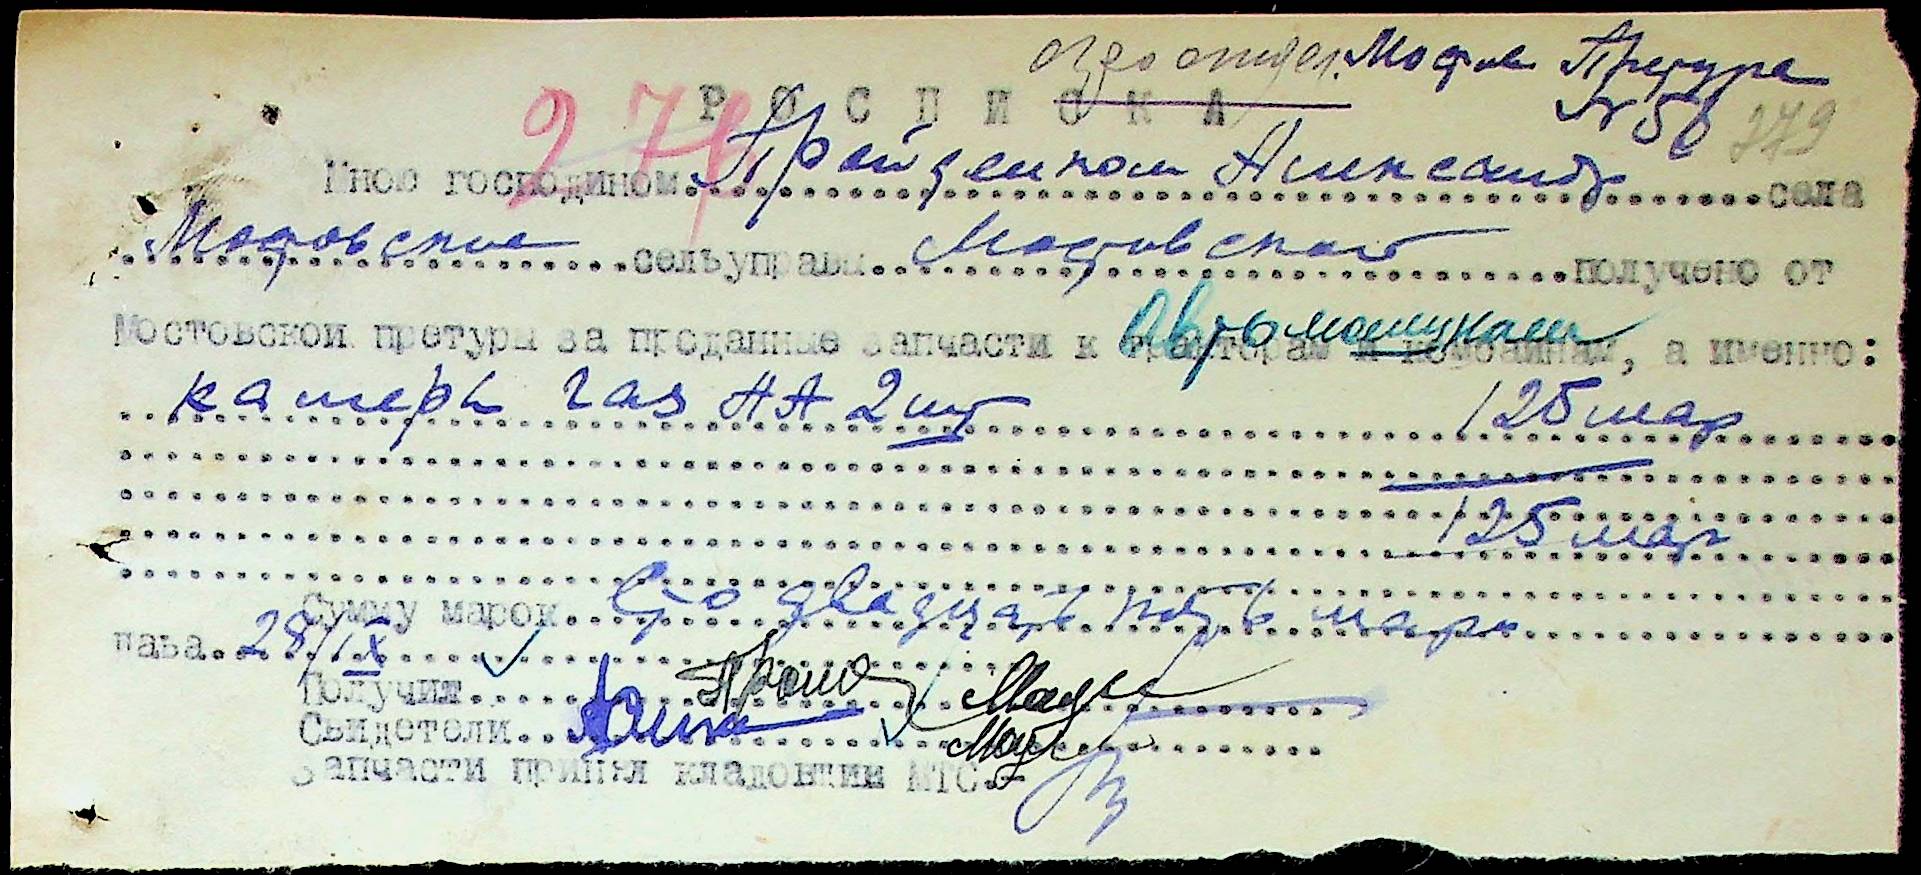 Мостов Претура
№ 56
279
РОСПИСКА
Мною господином Александр села
Мостовское сельуправы Мостовской получено от
Мостовской претуры за проданные запчасти к тракторам и комбайнам, а именно: Автомашинам
камеры газ АА 2 шт 125 мар
125 мар
Сумму марок Сто двадцать пять марок
28/IX
Получил
Свидетели
Запчасти принял кладовщик МТС.-